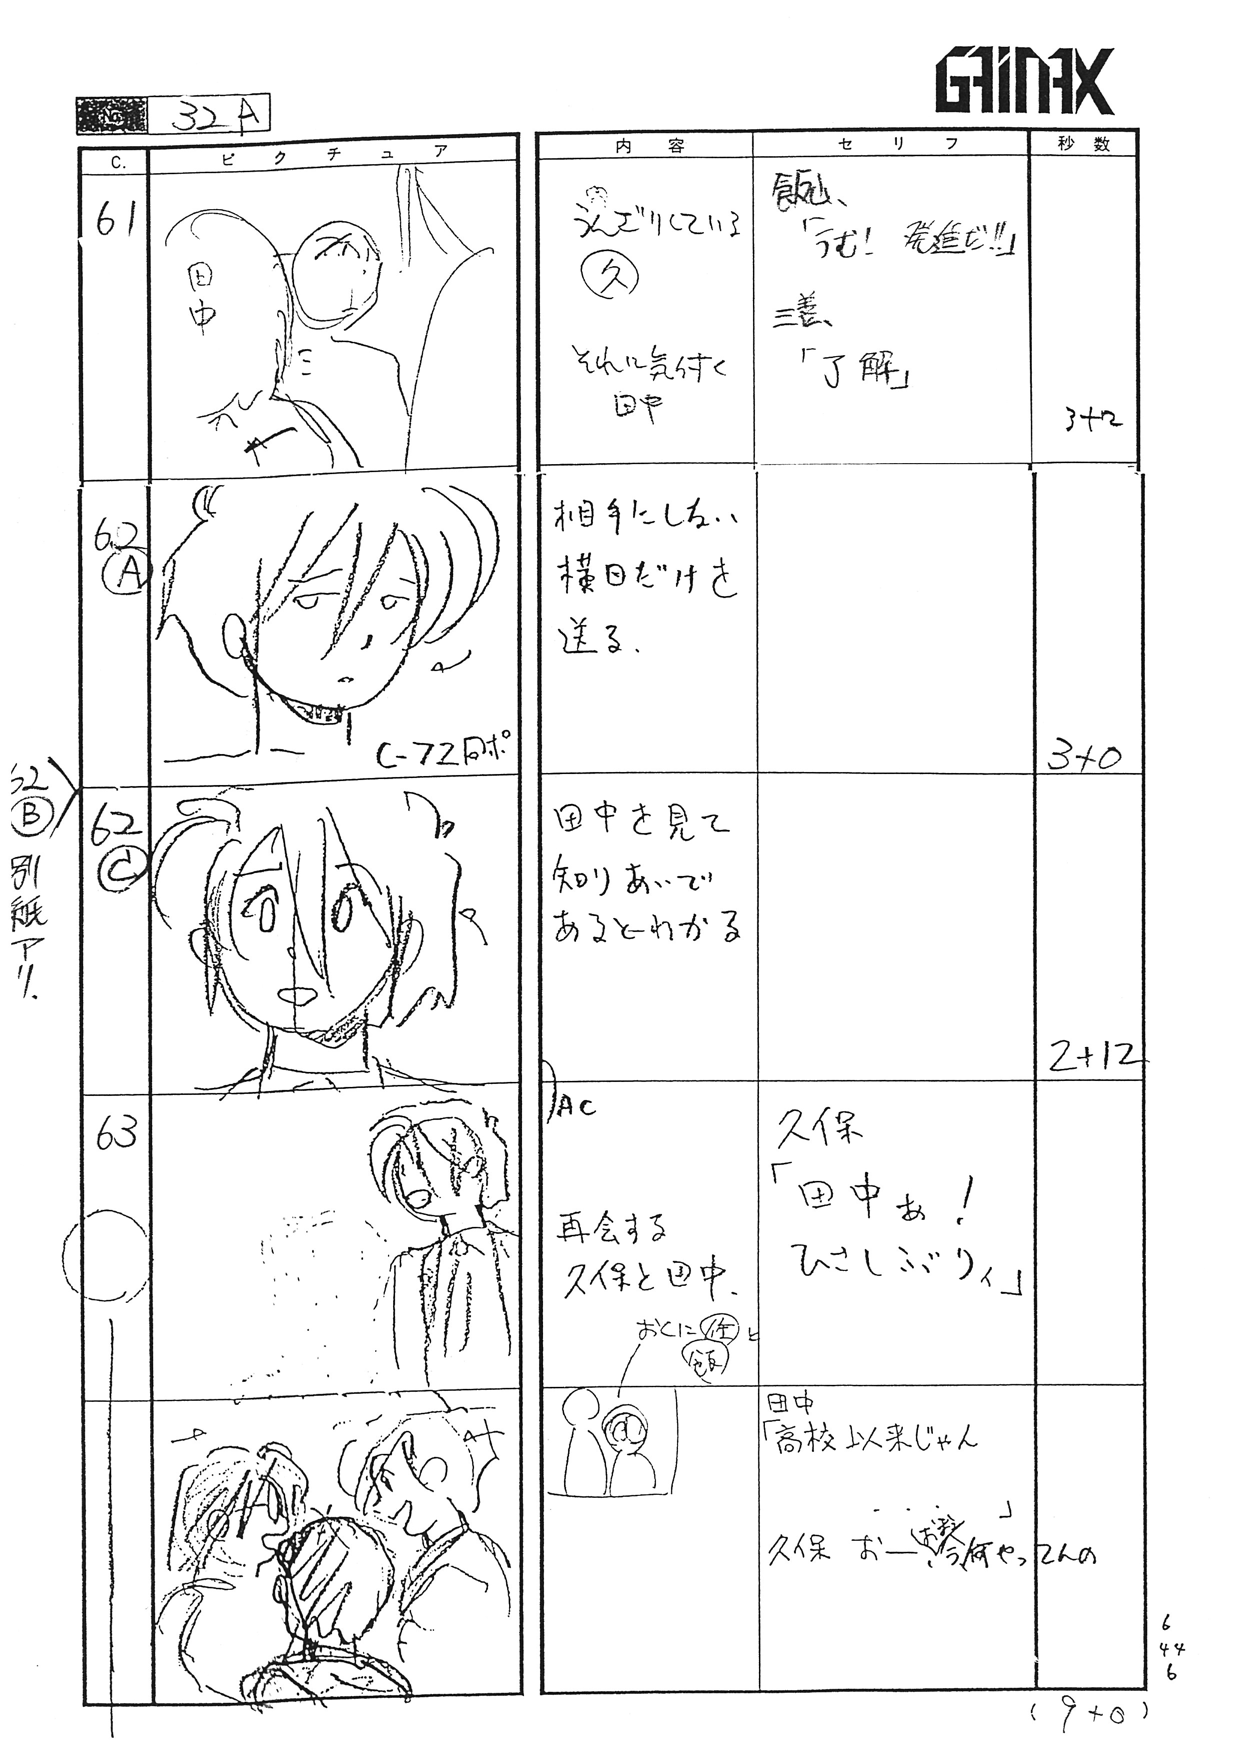 GAINAX
No. 32A
C.
ピクチュア
内容
セリフ
秒数
61
田中
うんざりしている
久
それに気付く
田中
飯山、
「うむ! 発進だ!!」
三善、
「了解」
3+12
62
A
C-72同ポ
相手にしない
横目だけを
送る.
3+0
32
B
別紙アリ.
62
C
田中を見て
知りあいで
あるとわかる
2+12
63
AC
再会する
久保と田中.
おくに
飯
久保
「田中ぁ!
ひさしぶりィ」
田中
「高校以来じゃん
・・・・」
久保 おー
今何やってんの
6
44
6
(9+0)